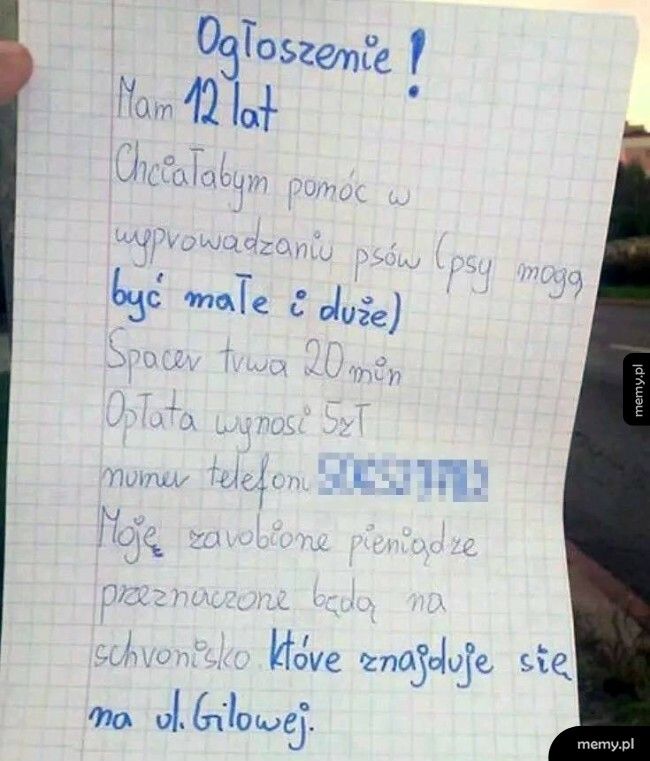 Ogłoszenie!
Mam 12 lat
Chciałabym pomóc w
wyprowadzaniu psów (psy mogą
być małe i duże)
Spacer trwa 20 min
Opłata wynosi 5zł
numer telefonu
Moję zarobione pieniądze
przeznaczone będą na
schronisko które znajduje się
na ul. Gilowej.
memy.pl
memy.pl